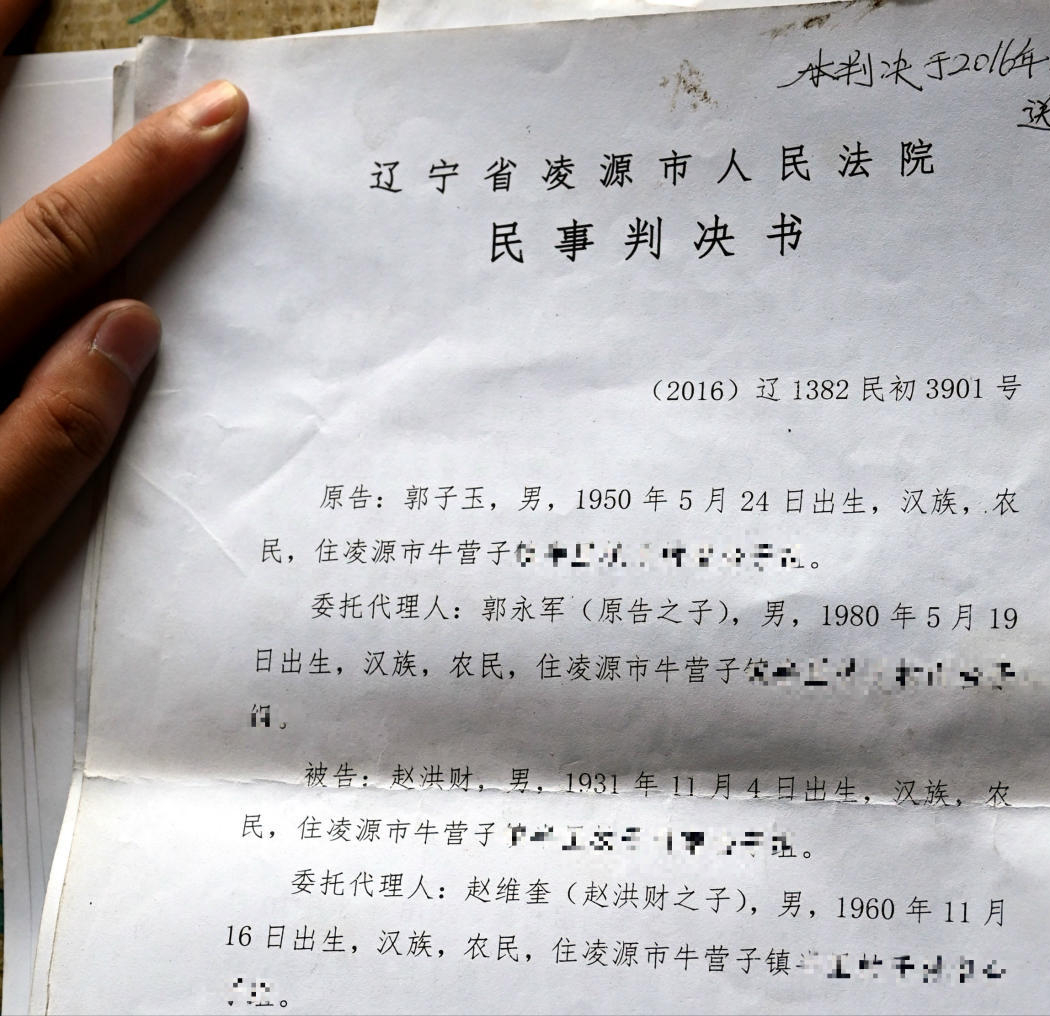 本判决于2016年
送
辽宁省凌源市人民法院
民事判决书
（2016）辽 1382 民初 3901 号
原告：郭子玉，男，1950 年 5 月 24 日出生，汉族，农
民，住凌源市牛营子
委托代理人：郭永军（原告之子），男，1980 年 5 月 19
日出生，汉族，农民，住凌源市牛营子
被告：赵洪财，男，1931 年 11 月 4 日出生，汉族，农
民，住凌源市牛营子
委托代理人：赵维奎（赵洪财之子），男，1960 年 11 月
16 日出生，汉族，农民，住凌源市牛营子镇